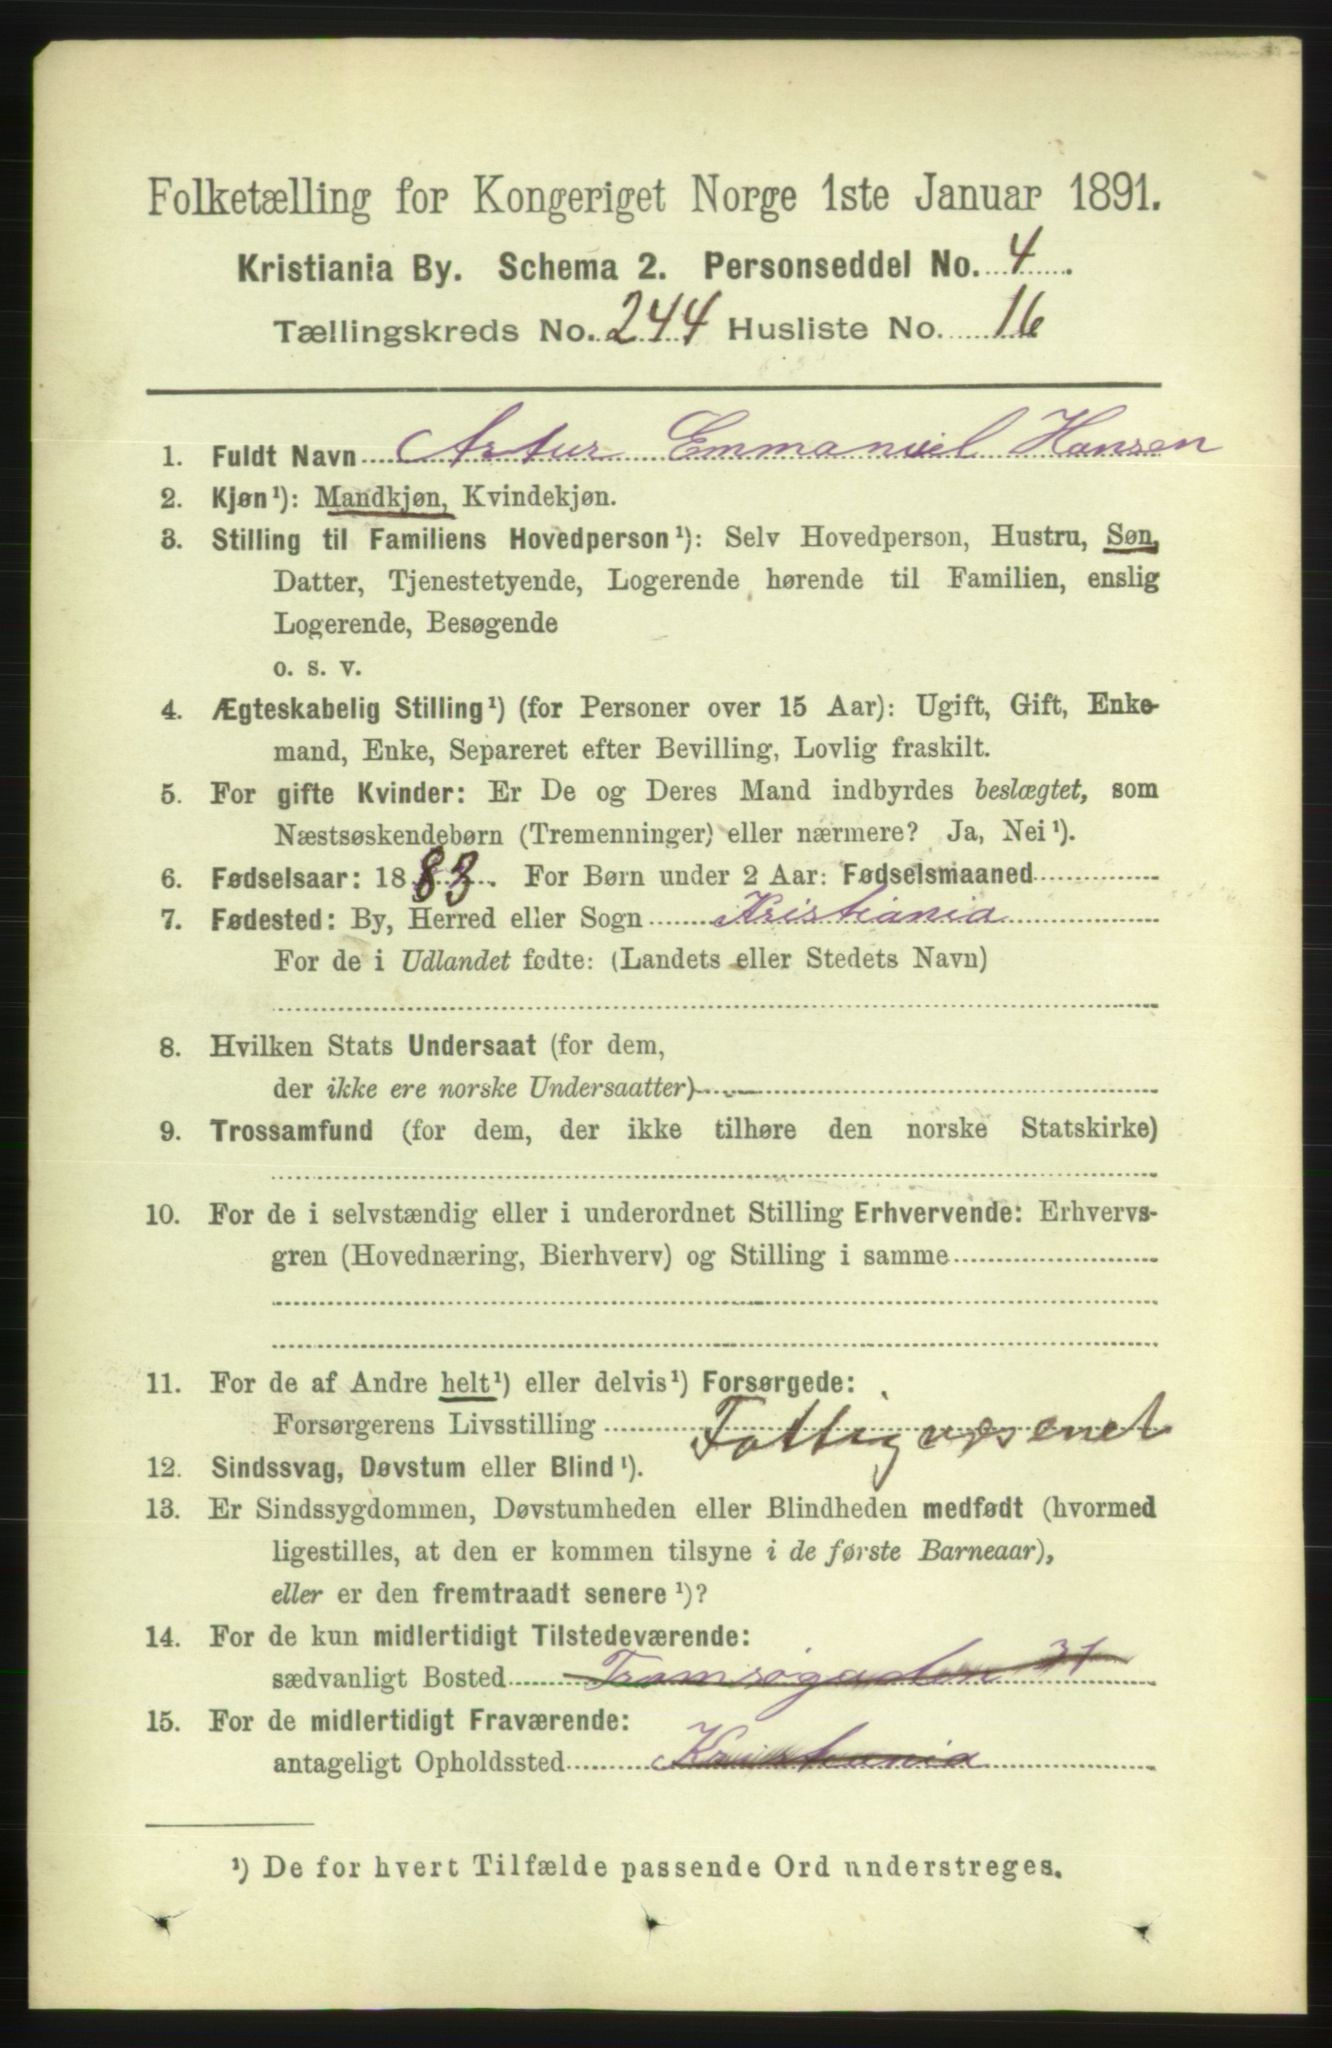 Folketælling for Kongeriget Norge 1ste Januar 1891.
Kristiania By. Schema 2. Personseddel No. 4.
Tællingskreds No. 244 Husliste No. 16
1. Fuldt Navn Artur Emmanuel Hansen
2. Kjøn¹): Mandkjøn, Kvindekjøn.
3. Stilling til Familiens Hovedperson¹): Selv Hovedperson, Hustru, Søn,
Datter, Tjenestetyende, Logerende hørende til Familien, enslig
Logerende, Besøgende
o. s. v.
4. Ægteskabelig Stilling¹) (for Personer over 15 Aar): Ugift, Gift, Enke-
mand, Enke, Separeret efter Bevilling, Lovlig fraskilt.
5. For gifte Kvinder: Er De og Deres Mand indbyrdes beslægtet, som
Næstsøskendebørn (Tremenninger) eller nærmere? Ja, Nei¹).
6. Fødselsaar: 1883. For Børn under 2 Aar: Fødselsmaaned
7. Fødested: By, Herred eller Sogn Kristiania
For de i Udlandet fødte: (Landets eller Stedets Navn)
8. Hvilken Stats Undersaat (for dem,
der ikke ere norske Undersaatter)
9. Trossamfund (for dem, der ikke tilhøre den norske Statskirke)
10. For de i selvstændig eller i underordnet Stilling Erhvervende: Erhvervs-
gren (Hovednæring, Bierhverv) og Stilling i samme
11. For de af Andre helt¹) eller delvis¹) Forsørgede:
Forsørgerens Livsstilling Fattigvæsenet
12. Sindssvag, Døvstum eller Blind¹).
13. Er Sindssygdommen, Døvstumheden eller Blindheden medfødt (hvormed
ligestilles, at den er kommen tilsyne i de første Barneaar),
eller er den fremtraadt senere¹)?
14. For de kun midlertidigt Tilstedeværende:
sædvanligt Bosted Tromsøgaden 31
15. For de midlertidigt Fraværende:
antageligt Opholdssted Kristiania
¹) De for hvert Tilfælde passende Ord understreges.